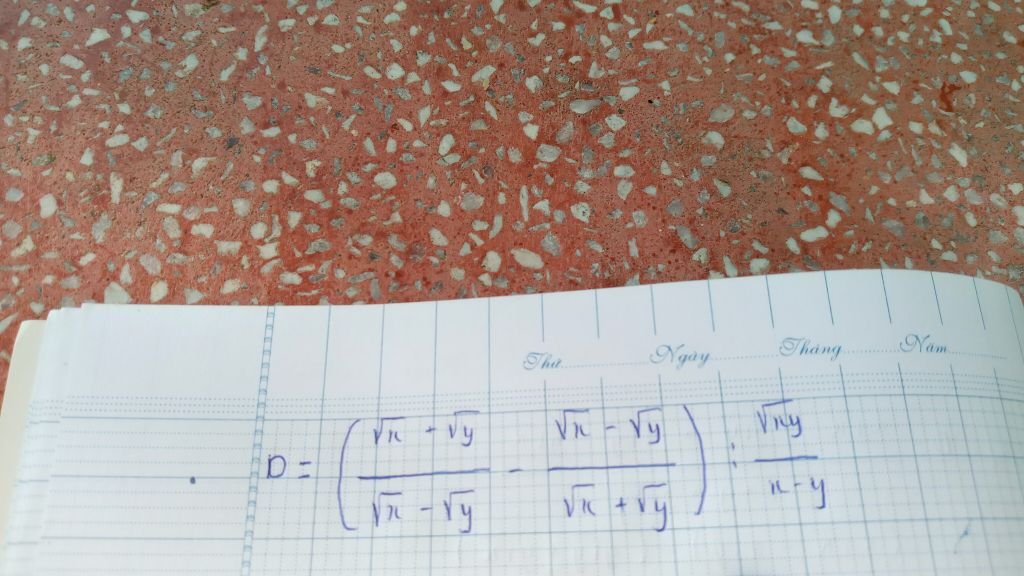 Thứ Ngày Tháng Năm
D = ( (√x - √y)/(√x - √y) - (√x - √y)/(√x + √y) ) : √xy/(x - y)